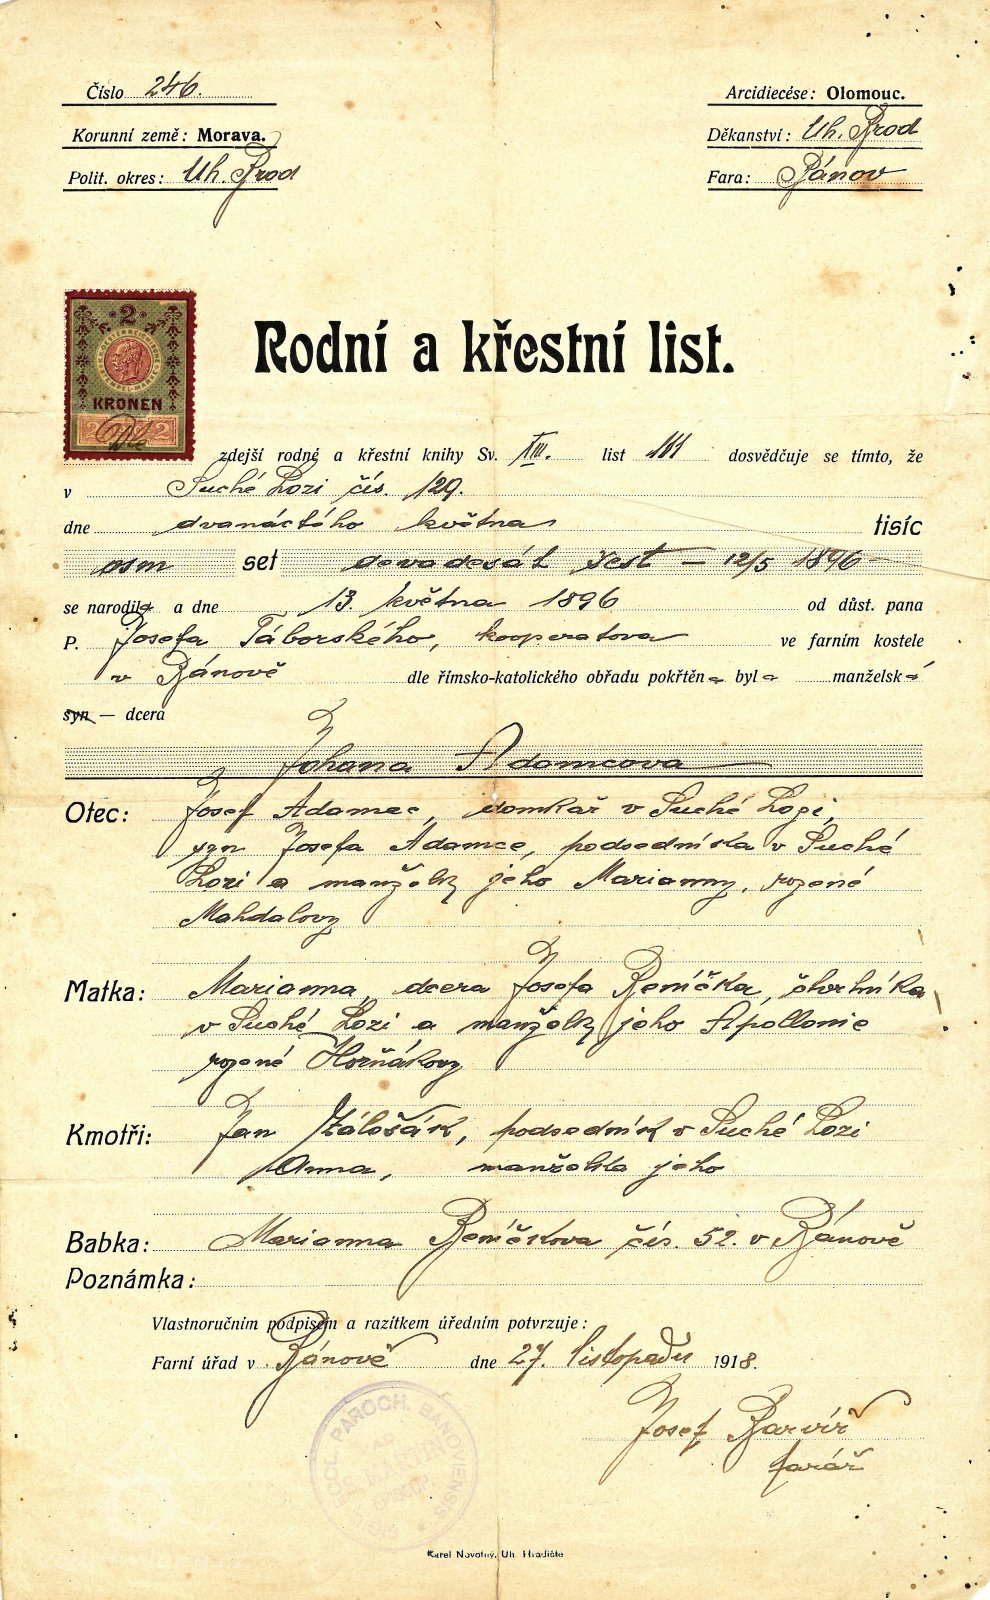 Číslo 246.
Arcidiecése: Olomouc.
Korunní země: Morava.
Děkanství: Uh. Brod
Polit. okres: Uh. Brod
Fara: Bánov
2
KRONEN
2 2
Rodní a křestní list.
zdejší rodné a křestní knihy Sv. XIII. list 111 dosvědčuje se tímto, že
v Suché Lozi čís. 129.
dne dvanáctého května tisíc
osm set devadesát šest – 12/5 1896
se narodila a dne 13. května 1896 od důst. pana
P. Josefa Táborského, kooperatora ve farním kostele
v Bánově dle římsko-katolického obřadu pokřtěna byla manželská
syn — dcera
Johana Adamcova
Otec: Josef Adamec, domkař v Suché Lozi,
syn Josefa Adamce, podsedníka v Suché
Lozi a manželky jeho Marianny, rozené
Mahdalovy
Matka: Marianna, dcera Josefa Beníčka, čtvrtníka
v Suché Lozi a manželky jeho Apollonie
rozené Horňákovy
Kmotři: Jan Zálešák, podsedník v Suché Lozi
Anna, manželka jeho
Babka: Marianna Beníčkova čís. 52. v Bánově
Poznámka:
Vlastnoručním podpisem a razítkem úředním potvrzuje:
Farní úřad v Bánově dne 27. listopadu 1918.
Josef Barvíř
farář
PAROCH. BANOVIENSIS
EPISCOP.
Karel Novotný, Uh. Hradiště